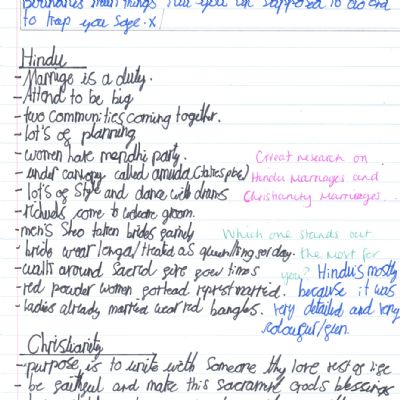 to keep you safe. x
Hindu
- Marriage is a duty.
- Attend to be big
- two communities coming together.
- lot's of planning
- women have mendhi party. Great research on
- under canopy called (takes place) Hindu Marriages and
- lot's of style and dance with drums Christianity Marriages.
come to welcome groom.
- men's taken brides family Which one stands out
- bride wear lenga / treated as queen/king for day. the most for
- walk around sacred fire four times you? Hinduis mostly
- red powder women forhead represt married. because it was
- ladies already married wear red bangles. very detailed and very
colourful/fun.
Christianity
- purpose is to unite with someone thy love rest of life
- be faithful and make this sacrament Gods blessings